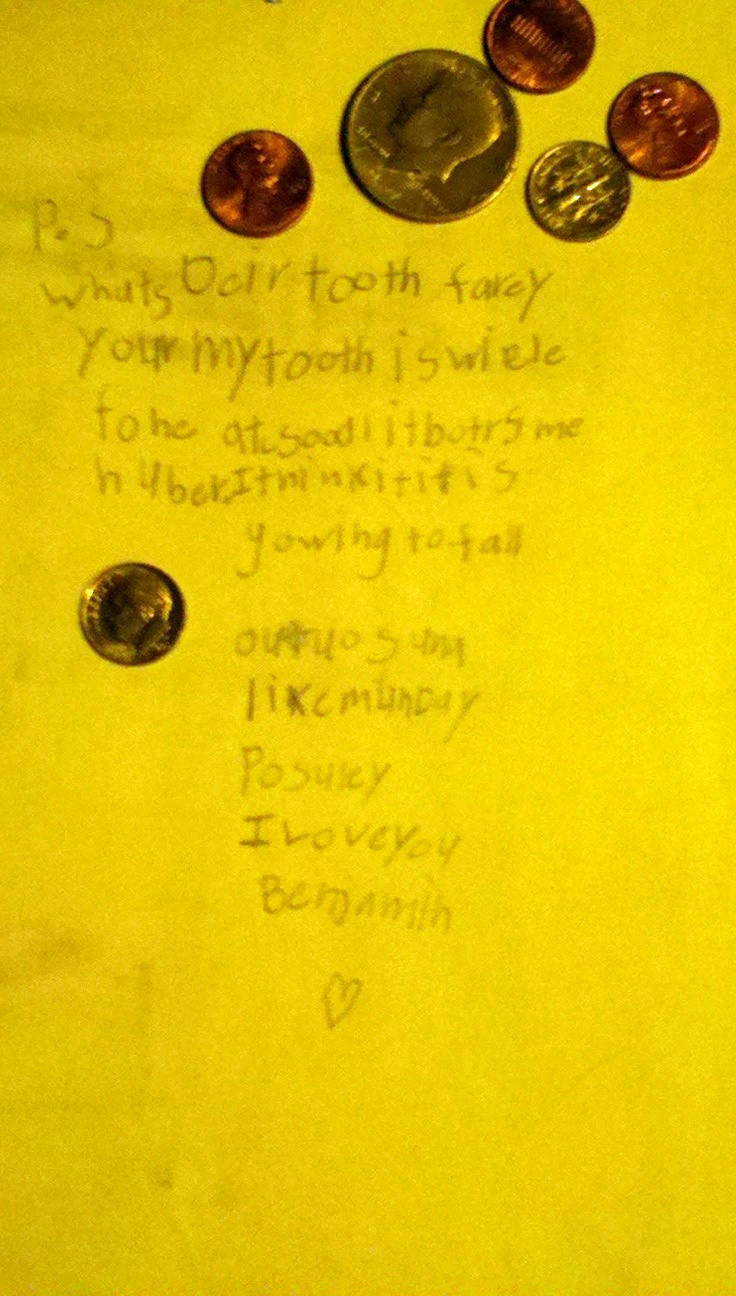 P.S
whats Deir tooth farey
your my tooth is wiele
to he at, good it botrs me
h
I thinkitit is
yowing to fall
out uo sum
like munday
Posuley
I Love you
Benjamin